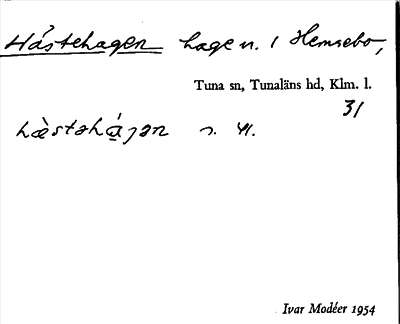 Hästehagen hage n. i Hemsebo,
Tuna sn, Tunaläns hd, Klm. l.
31
hὰstəhá̱gən n.
Ivar Modéer 1954